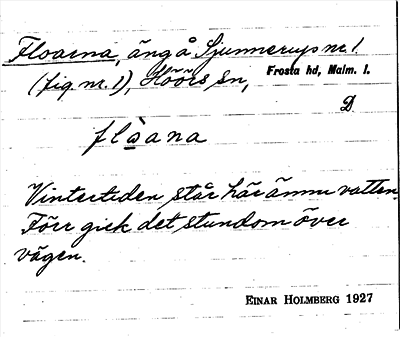 Floarna, äng å Sjunnerup nr 1.
(fig. nr. 1), Höörs sn, Frosta hd, Malm. l.
D.
flåana
Vintertiden står här ännu vatten.
Förr gick det stundom över
vägen.
EINAR HOLMBERG 1927